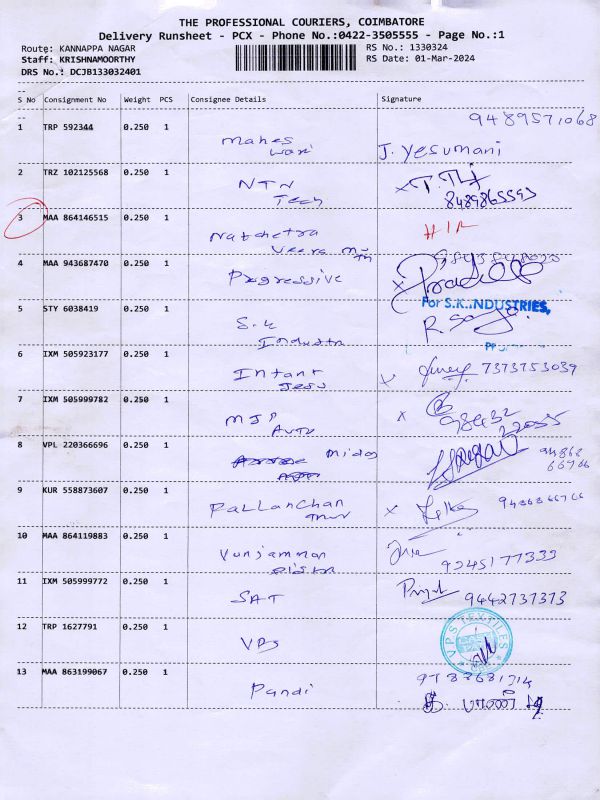 THE PROFESSIONAL COURIERS, COIMBATORE
Delivery Runsheet - PCX - Phone No.:0422-3505555 - Page No.:1
Route: KANNAPPA NAGAR RS No.: 1330324
Staff: KRISHNAMOORTHY RS Date: 01-Mar-2024
DRS No.: DCJB133032401
S No Consignment No Weight PCS Consignee Details Signature
1 TRP 592344 0.250 1 9489571068
Mahes J. Yesumani
2 TRZ 102125568 0.250 1
NTN
Tech 8489865595
3 MAA 864146515 0.250 1
Natchetra
4 MAA 943687470 0.250 1
Progressive
For S.K.INDUSTRIES,
5 STY 6038419 0.250 1
S.K
6 IXM 505923177 0.250 1
7373753039
7 IXM 505999782 0.250 1
MJP 98432
Auto 22055
8 VPL 220366696 0.250 1
9 KUR 558873607 0.250 1
Pallanchan
10 MAA 864119883 0.250 1
9245177333
11 IXM 505999772 0.250 1
SAT 9442737373
12 TRP 1627791 0.250 1
VPS VPS TEXTILES
13 MAA 863199067 0.250 1
Pandi